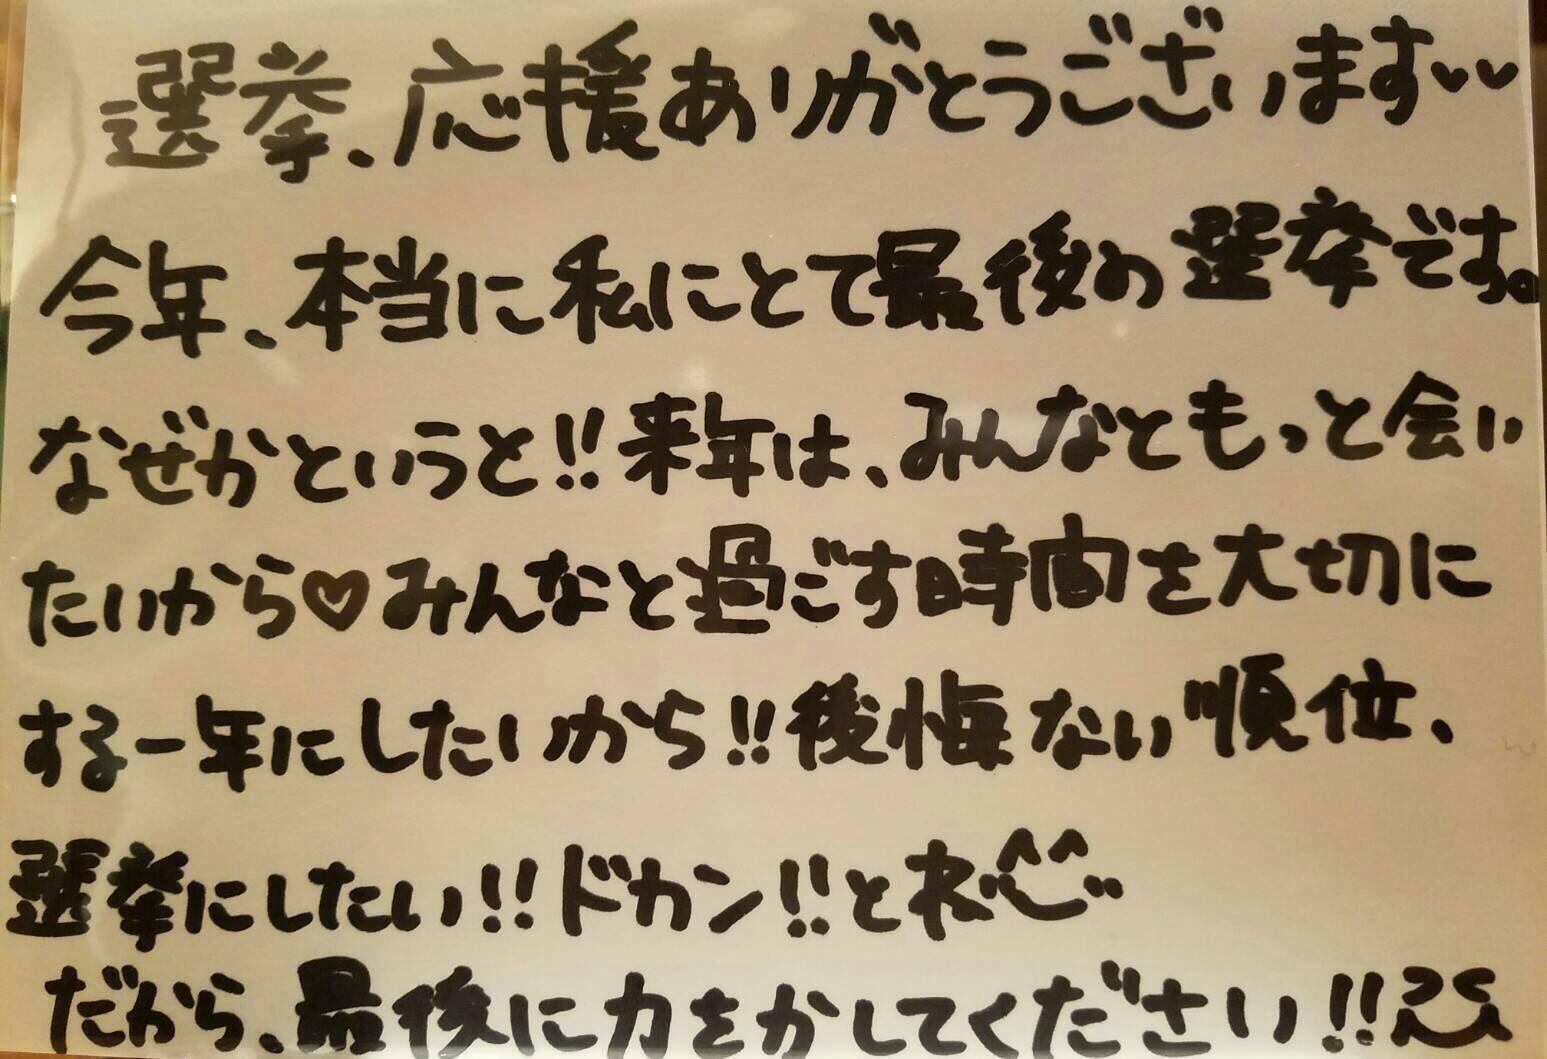 選挙、応援ありがとうございます♥♥
今年、本当に私にとて最後の選挙です。
なぜかというと!!来年は、みんなともっと会い
たいから♡みんなと過ごす時間を大切に
する一年にしたいから!!後悔ない順位、
選挙にしたい!!ドカン!!とね^^
だから、最後に力をかしてください!!